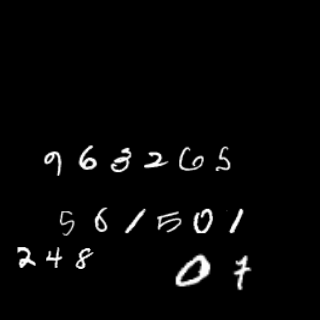 963265
561501
248
07